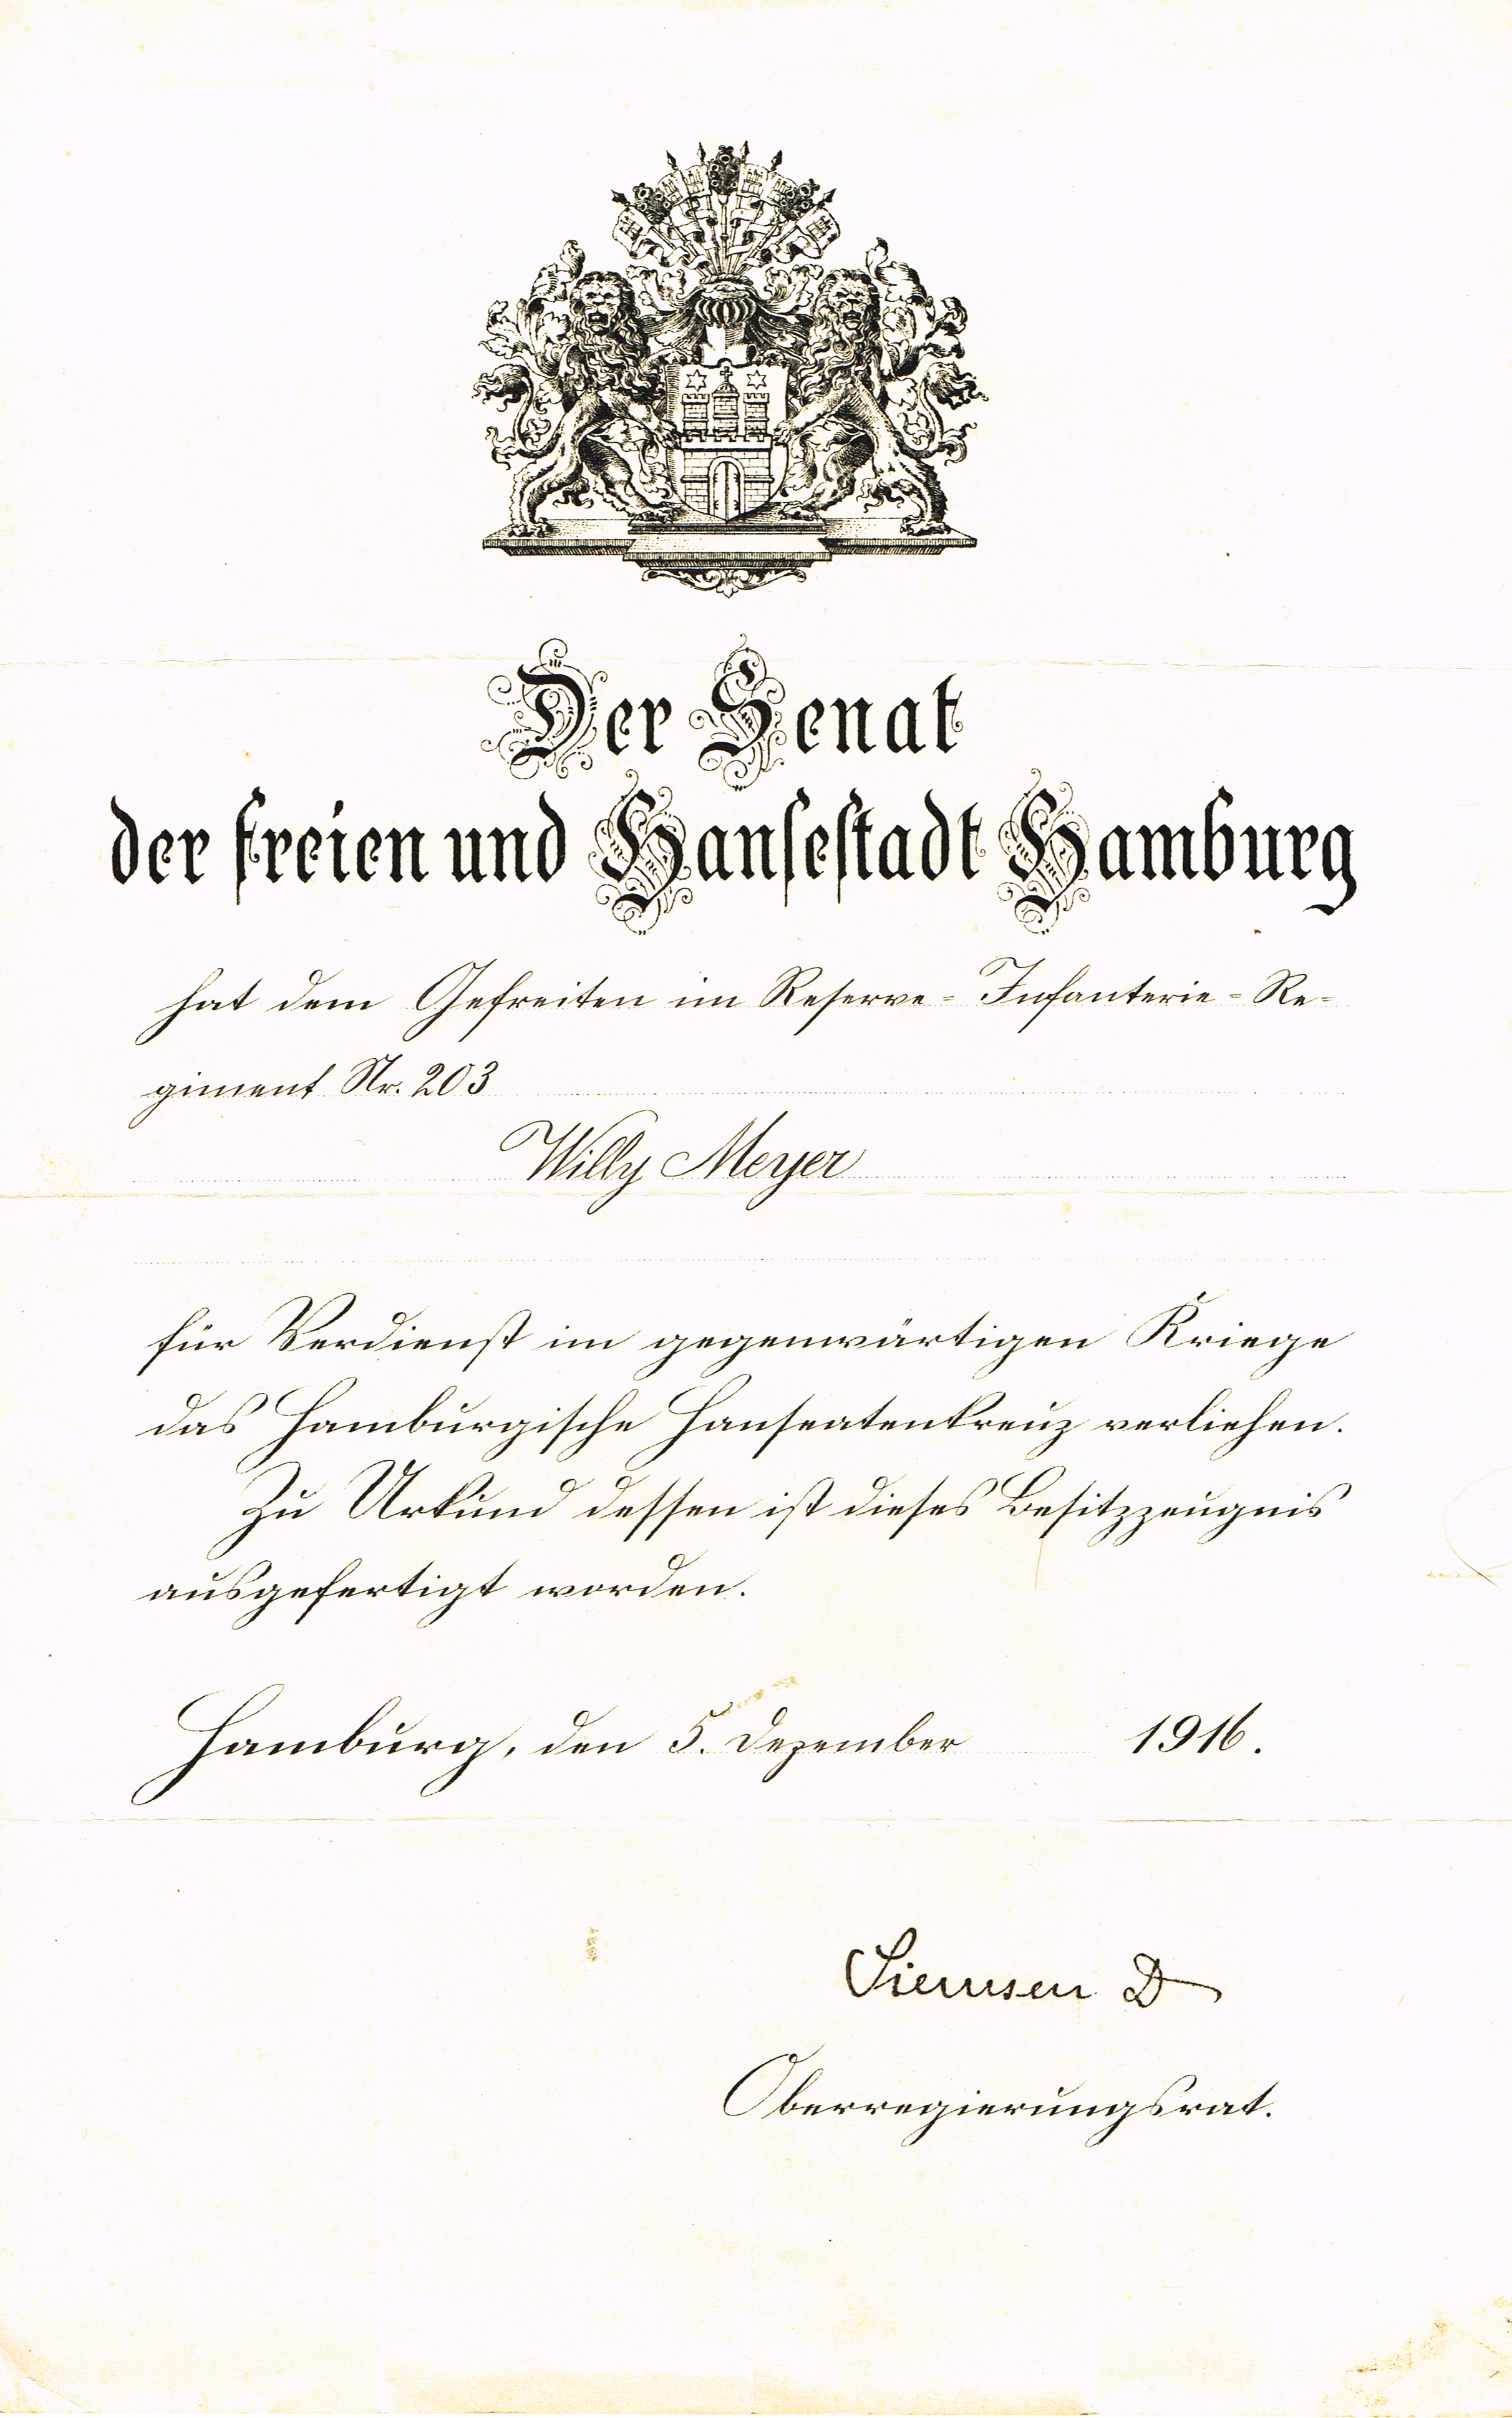 Der Senat
der freien und Hansestadt Hamburg
hat dem Gefreiten im Reserve-Infanterie-Re-
giment Nr. 203
Willy Meyer
für Verdienst im gegenwärtigen Kriege
das Hamburgische Hanseatenkreuz verliehen.
Zu Urkund dessen ist dieses Besitzzeugnis
ausgefertigt worden.
Hamburg, den 5. Dezember 1916.
Siemsen D
Oberregierungsrat.